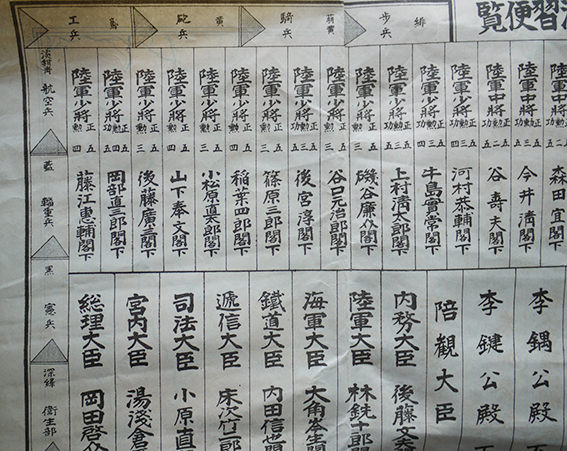 習便覧
緋
歩兵
萌黄
騎兵
黄
砲兵
鳶
工兵
淡紺青
航空兵
藍
輜重兵
黒
憲兵
深緑
衛生部
陸軍中将 正五 勲二 功五 森田宜閣下
陸軍中将 正五 勲三 功五 今井清閣下
陸軍中将 正五 勲二 功五 谷寿夫閣下
陸軍少将 正五 勲三 功四 河村恭輔閣下
陸軍少将 正五 勲三 功四 牛島實常閣下
陸軍少将 正五 勲三 功五 上村清太郎閣下
陸軍少将 正五 勲三 功五 磯谷廉介閣下
陸軍少将 正五 勲三 谷口元治郎閣下
陸軍少将 正五 勲三 後宮淳閣下
陸軍少将 正五 勲三 篠原三郎閣下
陸軍少将 正五 勲三 稲葉四郎閣下
陸軍少将 正五 勲三 小松原道太郎閣下
陸軍少将 正五 勲四 山下奉文閣下
陸軍少将 正五 勲三 後藤廣三閣下
陸軍少将 正五 岡部直三郎閣下
陸軍少将 正五 藤江恵輔閣下
李鍝公殿下
李鍵公殿下
陪観大臣
内務大臣 後藤文
陸軍大臣 林銑十郎閣
海軍大臣 大角岑生閣
鐵道大臣 内田信也閣
逓信大臣 床次竹二郎
司法大臣 小原直
宮内大臣 湯浅倉
総理大臣 岡田啓介